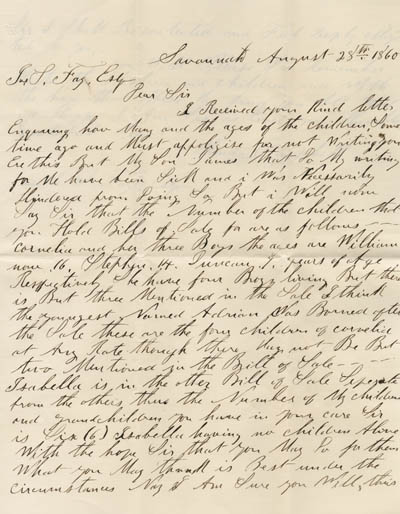 Savannah August 28th 1860
Js. S. Fay, Esq
Dear Sir
I Received your Kind letter
Enquring how Many and the ages of the children Some
time ago and Must appoligise for not Writing you
Er this But My Son James that Do My writing
for Me have been Sick and i Was Necessarily
Hindered from Doing So But i Will now
Say Sir that the Number of the children that
you Hold Bills of Sale for are as follows —
cornelia and her three Boys the ages are William
now 16, Stephen, 14. Duncan, 9, years of age
Respectively She have four Boys living But there
is But three Mentioned in the Sale I think
the youngest Named Adrian Was Borned after
the Sale these are the four children of cornelia
at Any Rate though there May not Be But
two Mentioned in the Bill of Sale — — —
Isabella is, in the other Bill of Sale Seperate
from the others, thus the Number of My children
and grandchildren you have in your care Sir
is Six (6) Isabella having no children Alone
With the hope Sir that you May Do for them
What you May think is Best under the
circumstances Nay I Am Sure you Will, this